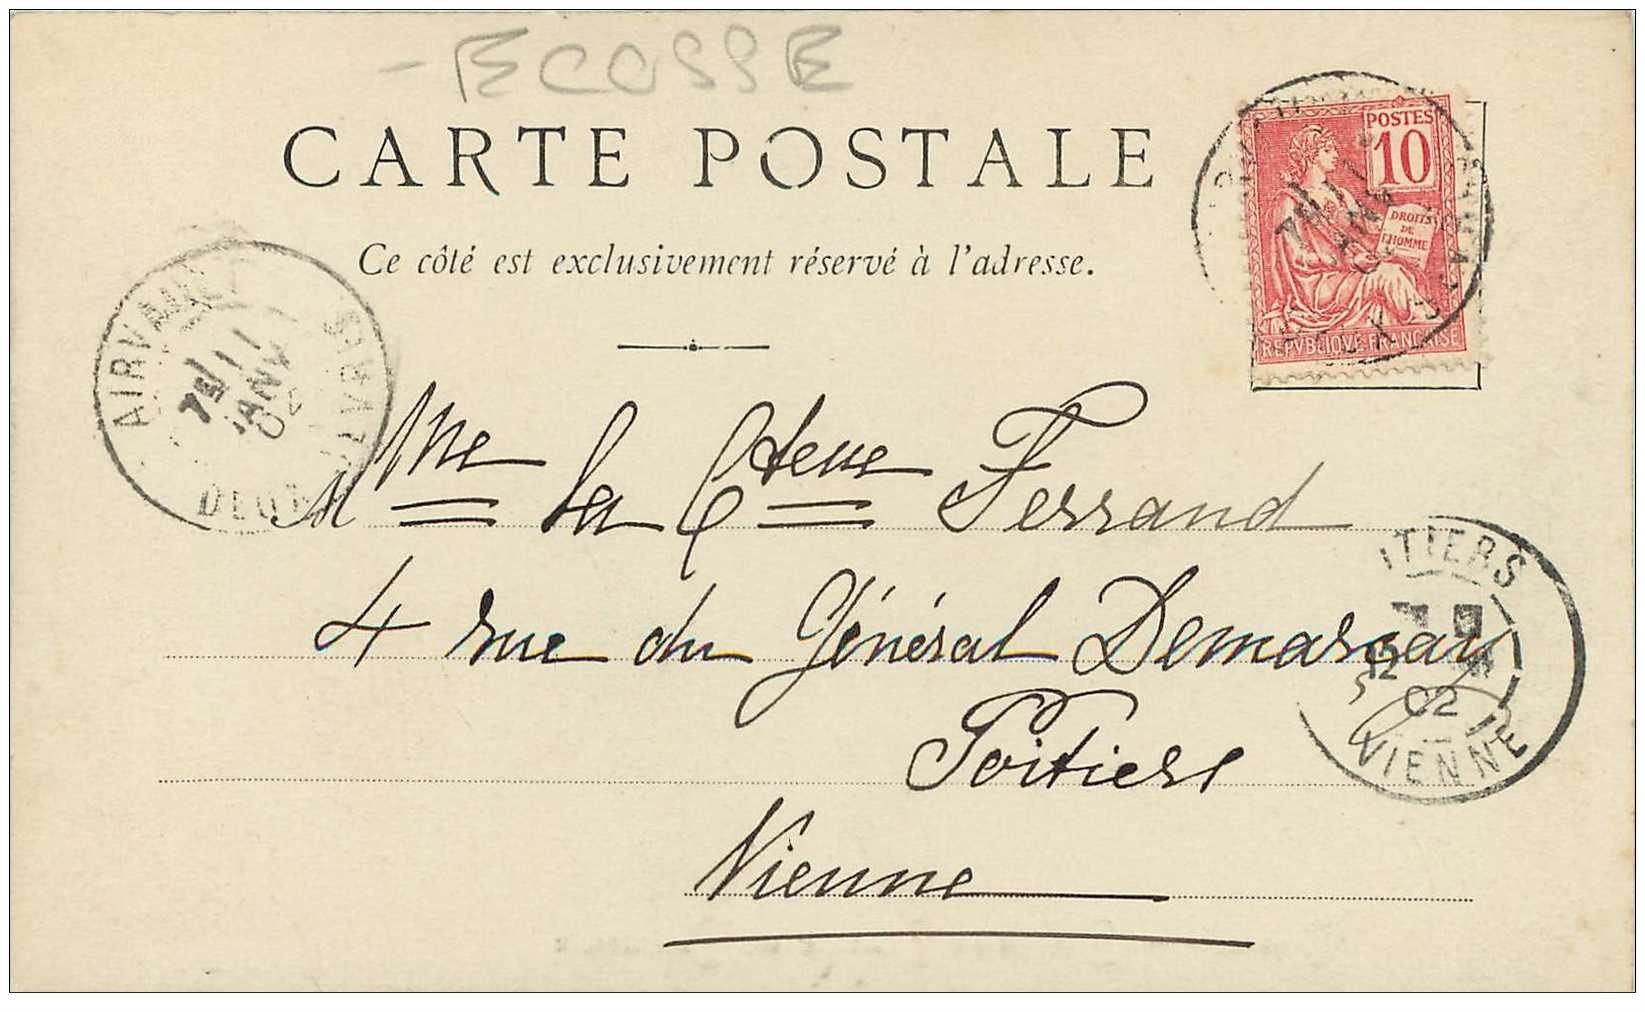 - ECOSSE
CARTE POSTALE
Ce côté est exclusivement réservé à l'adresse.
POSTES
10
DROITS
DE
L'HOMME
REPVBLIQVE FRANCAISE
AIRVAULT
7E/11
JANV
02
DEUX SEVRES
M Mme la Ctesse Ferrand
4 rue du Général Demarçay
Poitiers
Vienne
ITIERS
12
02
VIENNE